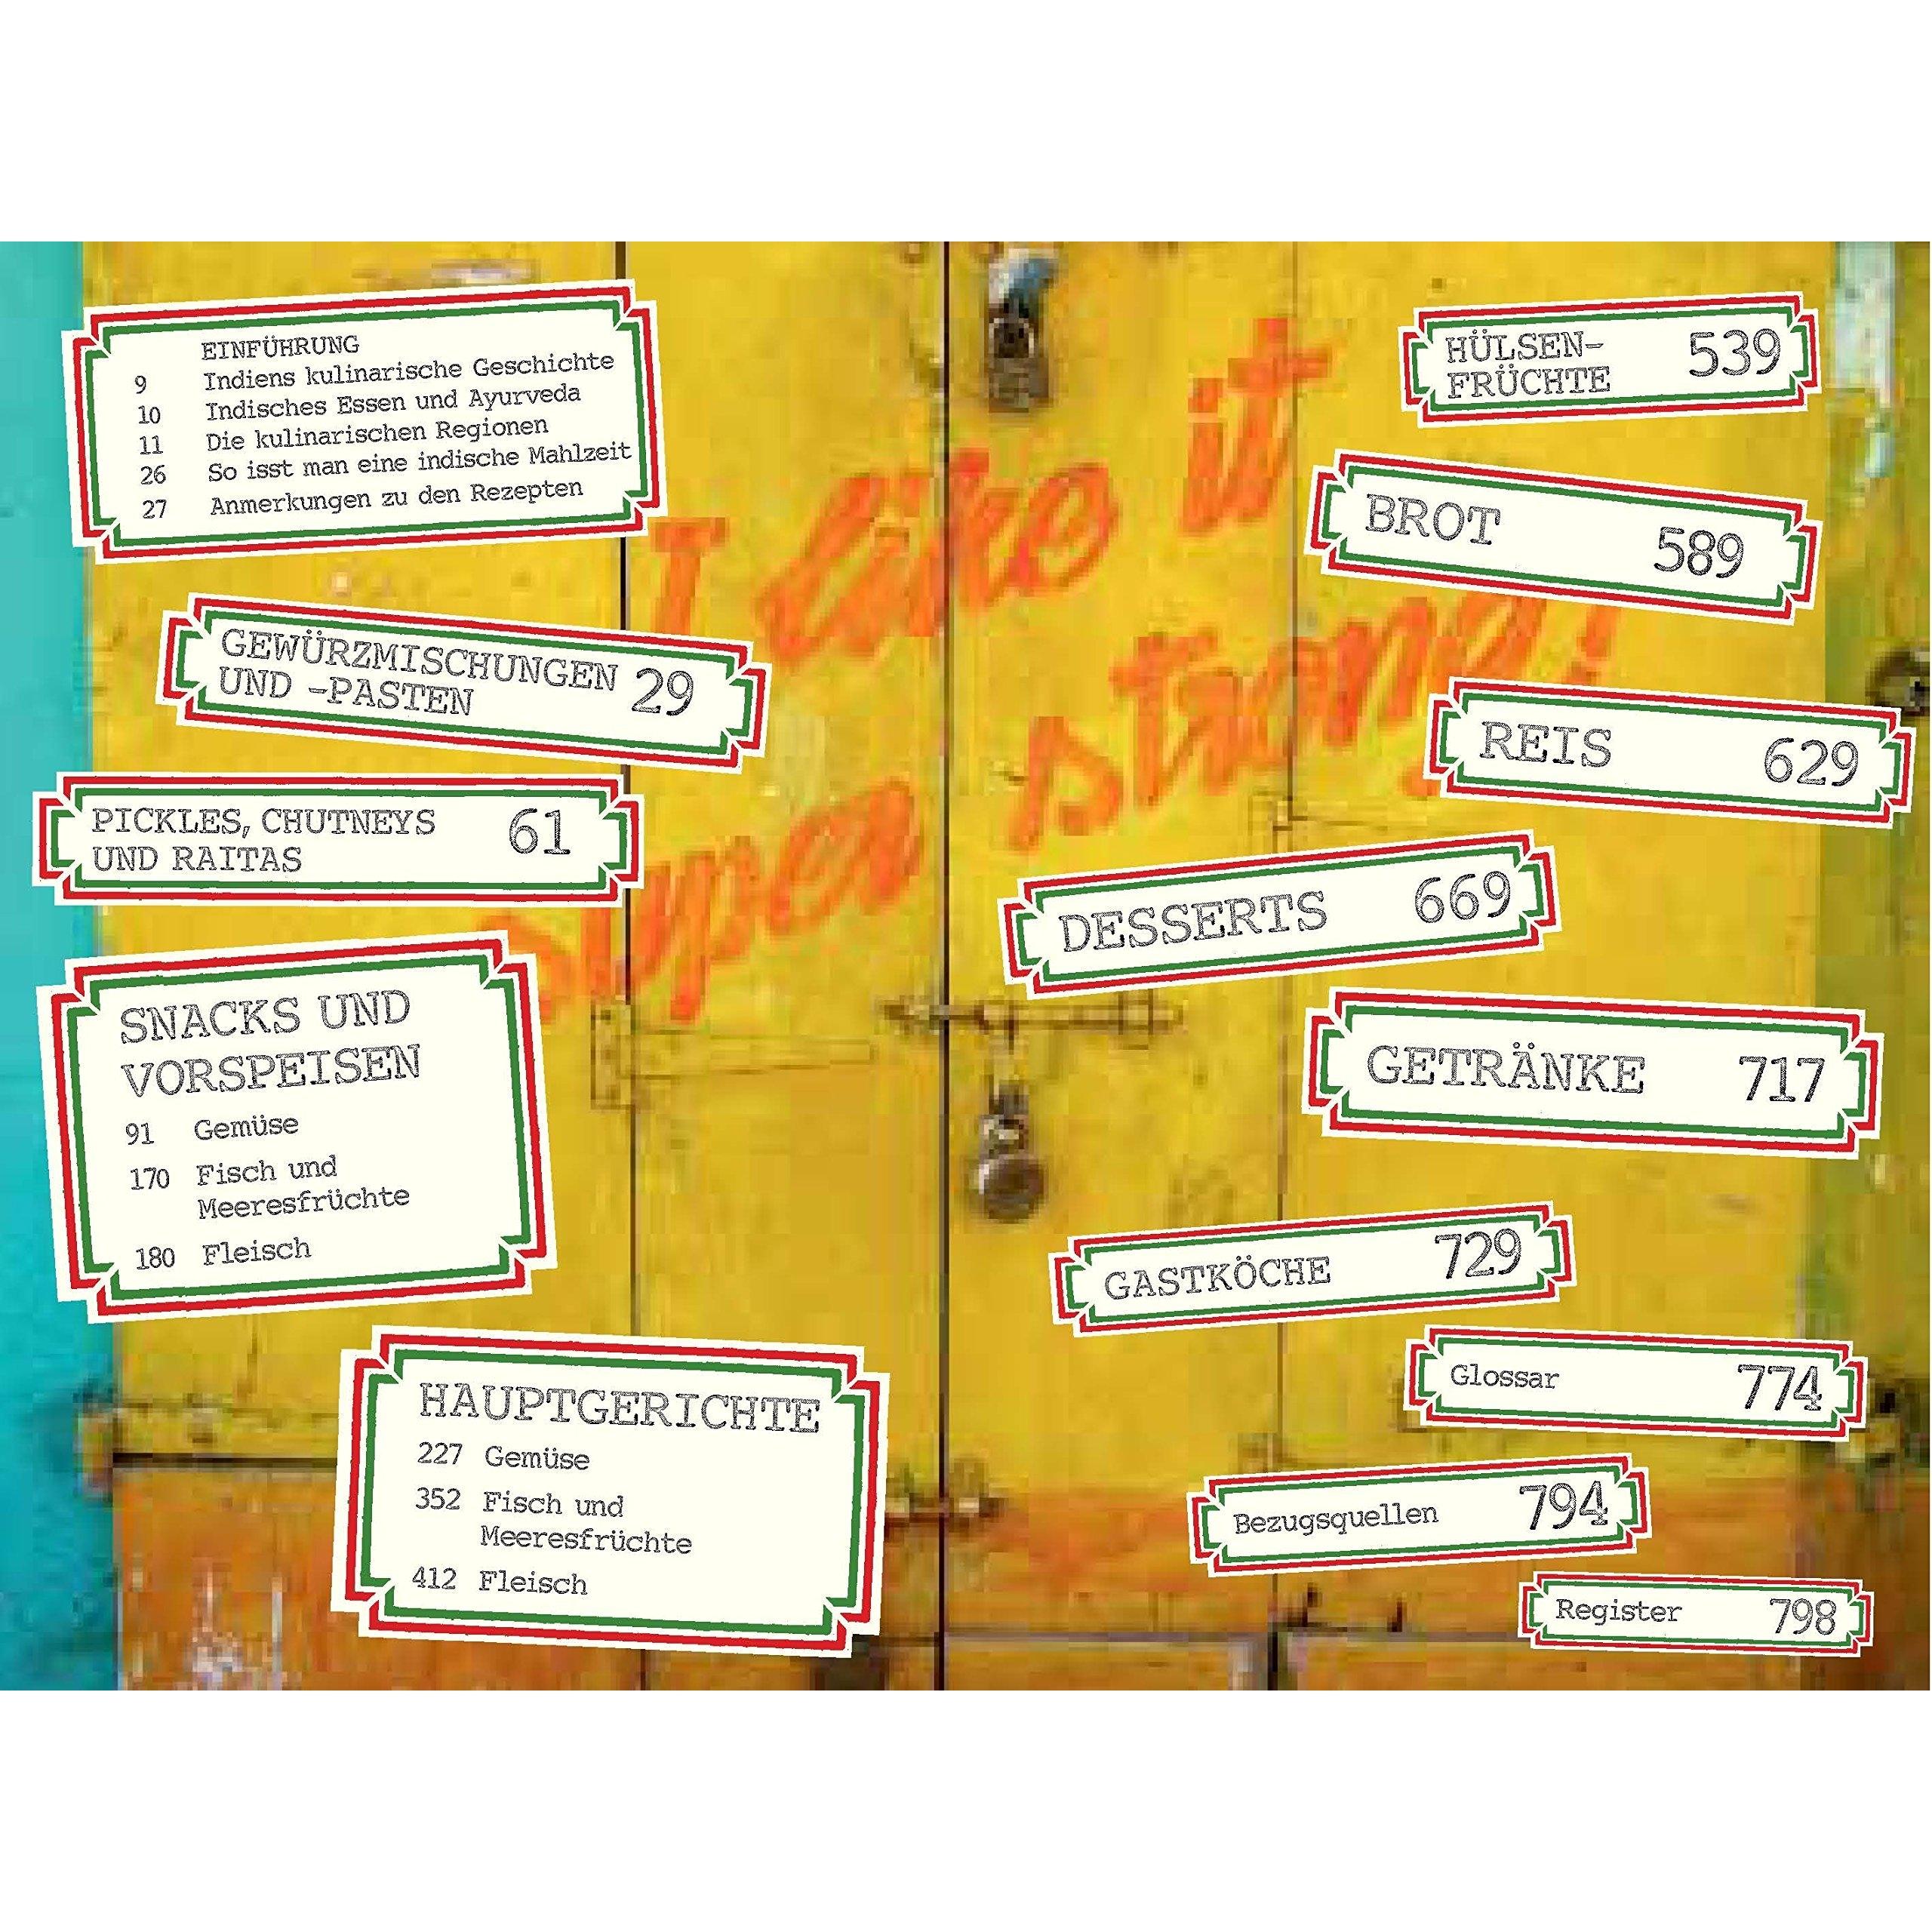 EINFÜHRUNG
9 Indiens kulinarische Geschichte
10 Indisches Essen und Ayurveda
11 Die kulinarischen Regionen
26 So isst man eine indische Mahlzeit
27 Anmerkungen zu den Rezepten
GEWÜRZMISCHUNGEN
UND -PASTEN 29
PICKLES, CHUTNEYS
UND RAITAS 61
SNACKS UND
VORSPEISEN
91 Gemüse
170 Fisch und
Meeresfrüchte
180 Fleisch
HAUPTGERICHTE
227 Gemüse
352 Fisch und
Meeresfrüchte
412 Fleisch
I like it
super strong!
HÜLSEN-
FRÜCHTE 539
BROT 589
REIS 629
DESSERTS 669
GETRÄNKE 717
GASTKÖCHE 729
Glossar 774
Bezugsquellen 794
Register 798